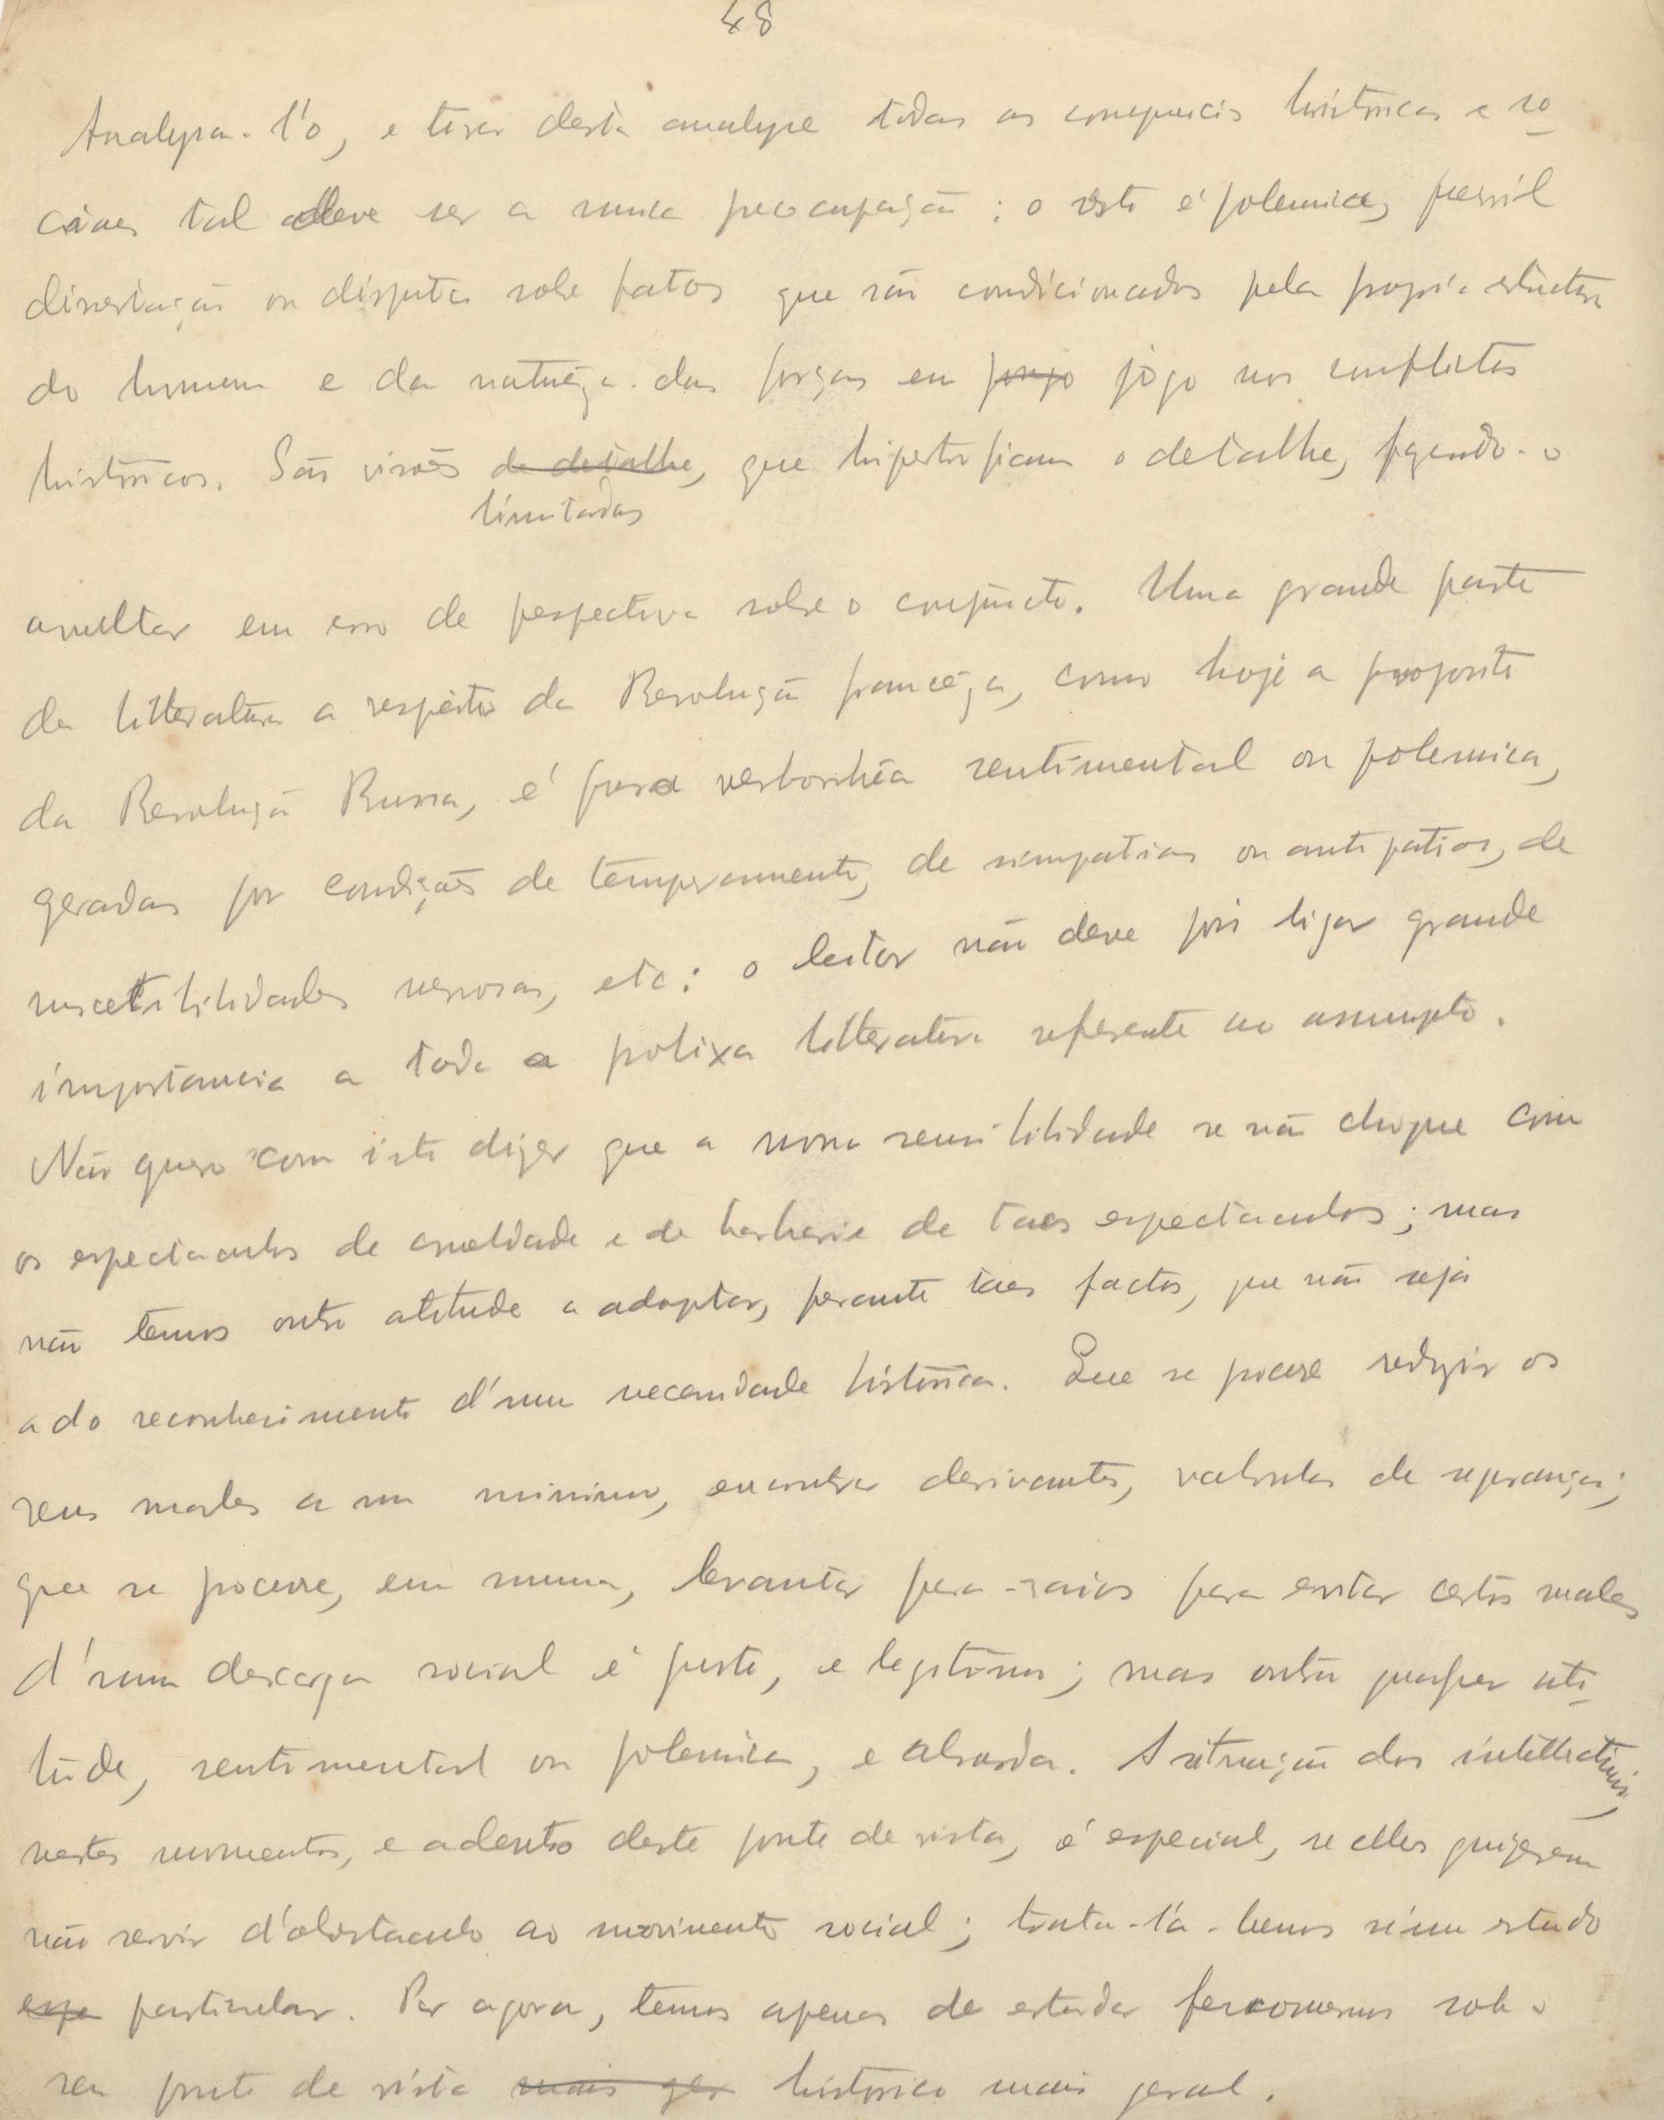 48
Analysa-l'o, e tirar desta analyse todas as consequencias historicas e so-
ciaes tal deve ser a nossa preocupação: o resto é polemica, pueril
dissertação ou disputa sobre fatos que são condicionados pela propria estructura
do homem e da natureza das forças em forço jôgo nos conflictos
históricos. São visões de detalhe, que hipertrofiam o detalhe, fazendo-o
limitadas
avultar em erro de perspectiva sobre o conjuncto. Uma grande parte
da litteratura a respeito da Revolução francêza, como hoje a proposito
da Revolução Russa, é pura verborrhêa sentimental ou polemica,
geradas por condições de temperamento, de simpatias ou antipatias, de
suscetibilidades nervosas, etc: o leitor não deve pois ligar grande
importancia a toda a prolixa litteratura referente ao assumpto.
Não quero com isto dizer que a nossa sensibilidade se não choque com
os espectaculos de crueldade e de barbarie de taes espectaculos; mas
não temos outra atitude a adoptar, perante taes factos, que não seja
a do reconhecimento d'uma necessidade histórica. Que se procure reduzir os
seus males a um minimo, encontrar derivantes, valvulas de segurança;
que se procure, em summa, levantar para-raios para evitar certos males
d'uma descarga social é justo, e legitimo; mas outra qualquer ati-
tude, sentimental ou polemica, e absurda. A situação dos intellectuais,
nestes momentos, e adentro deste ponto de vista, é especial, se elles quizerem
não servir d'obstaculo ao movimento social; trata-l'a-hemos n'um estudo
espe particular. Por agora, temos apenas de estudar fenomenos sob o
seu ponto de vista mais ger histórico mais geral.